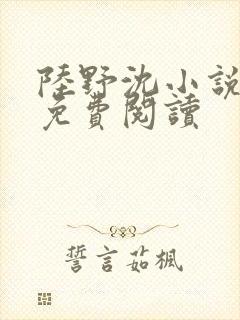 陸野沈小說
免費閱讀
誓言茹楓